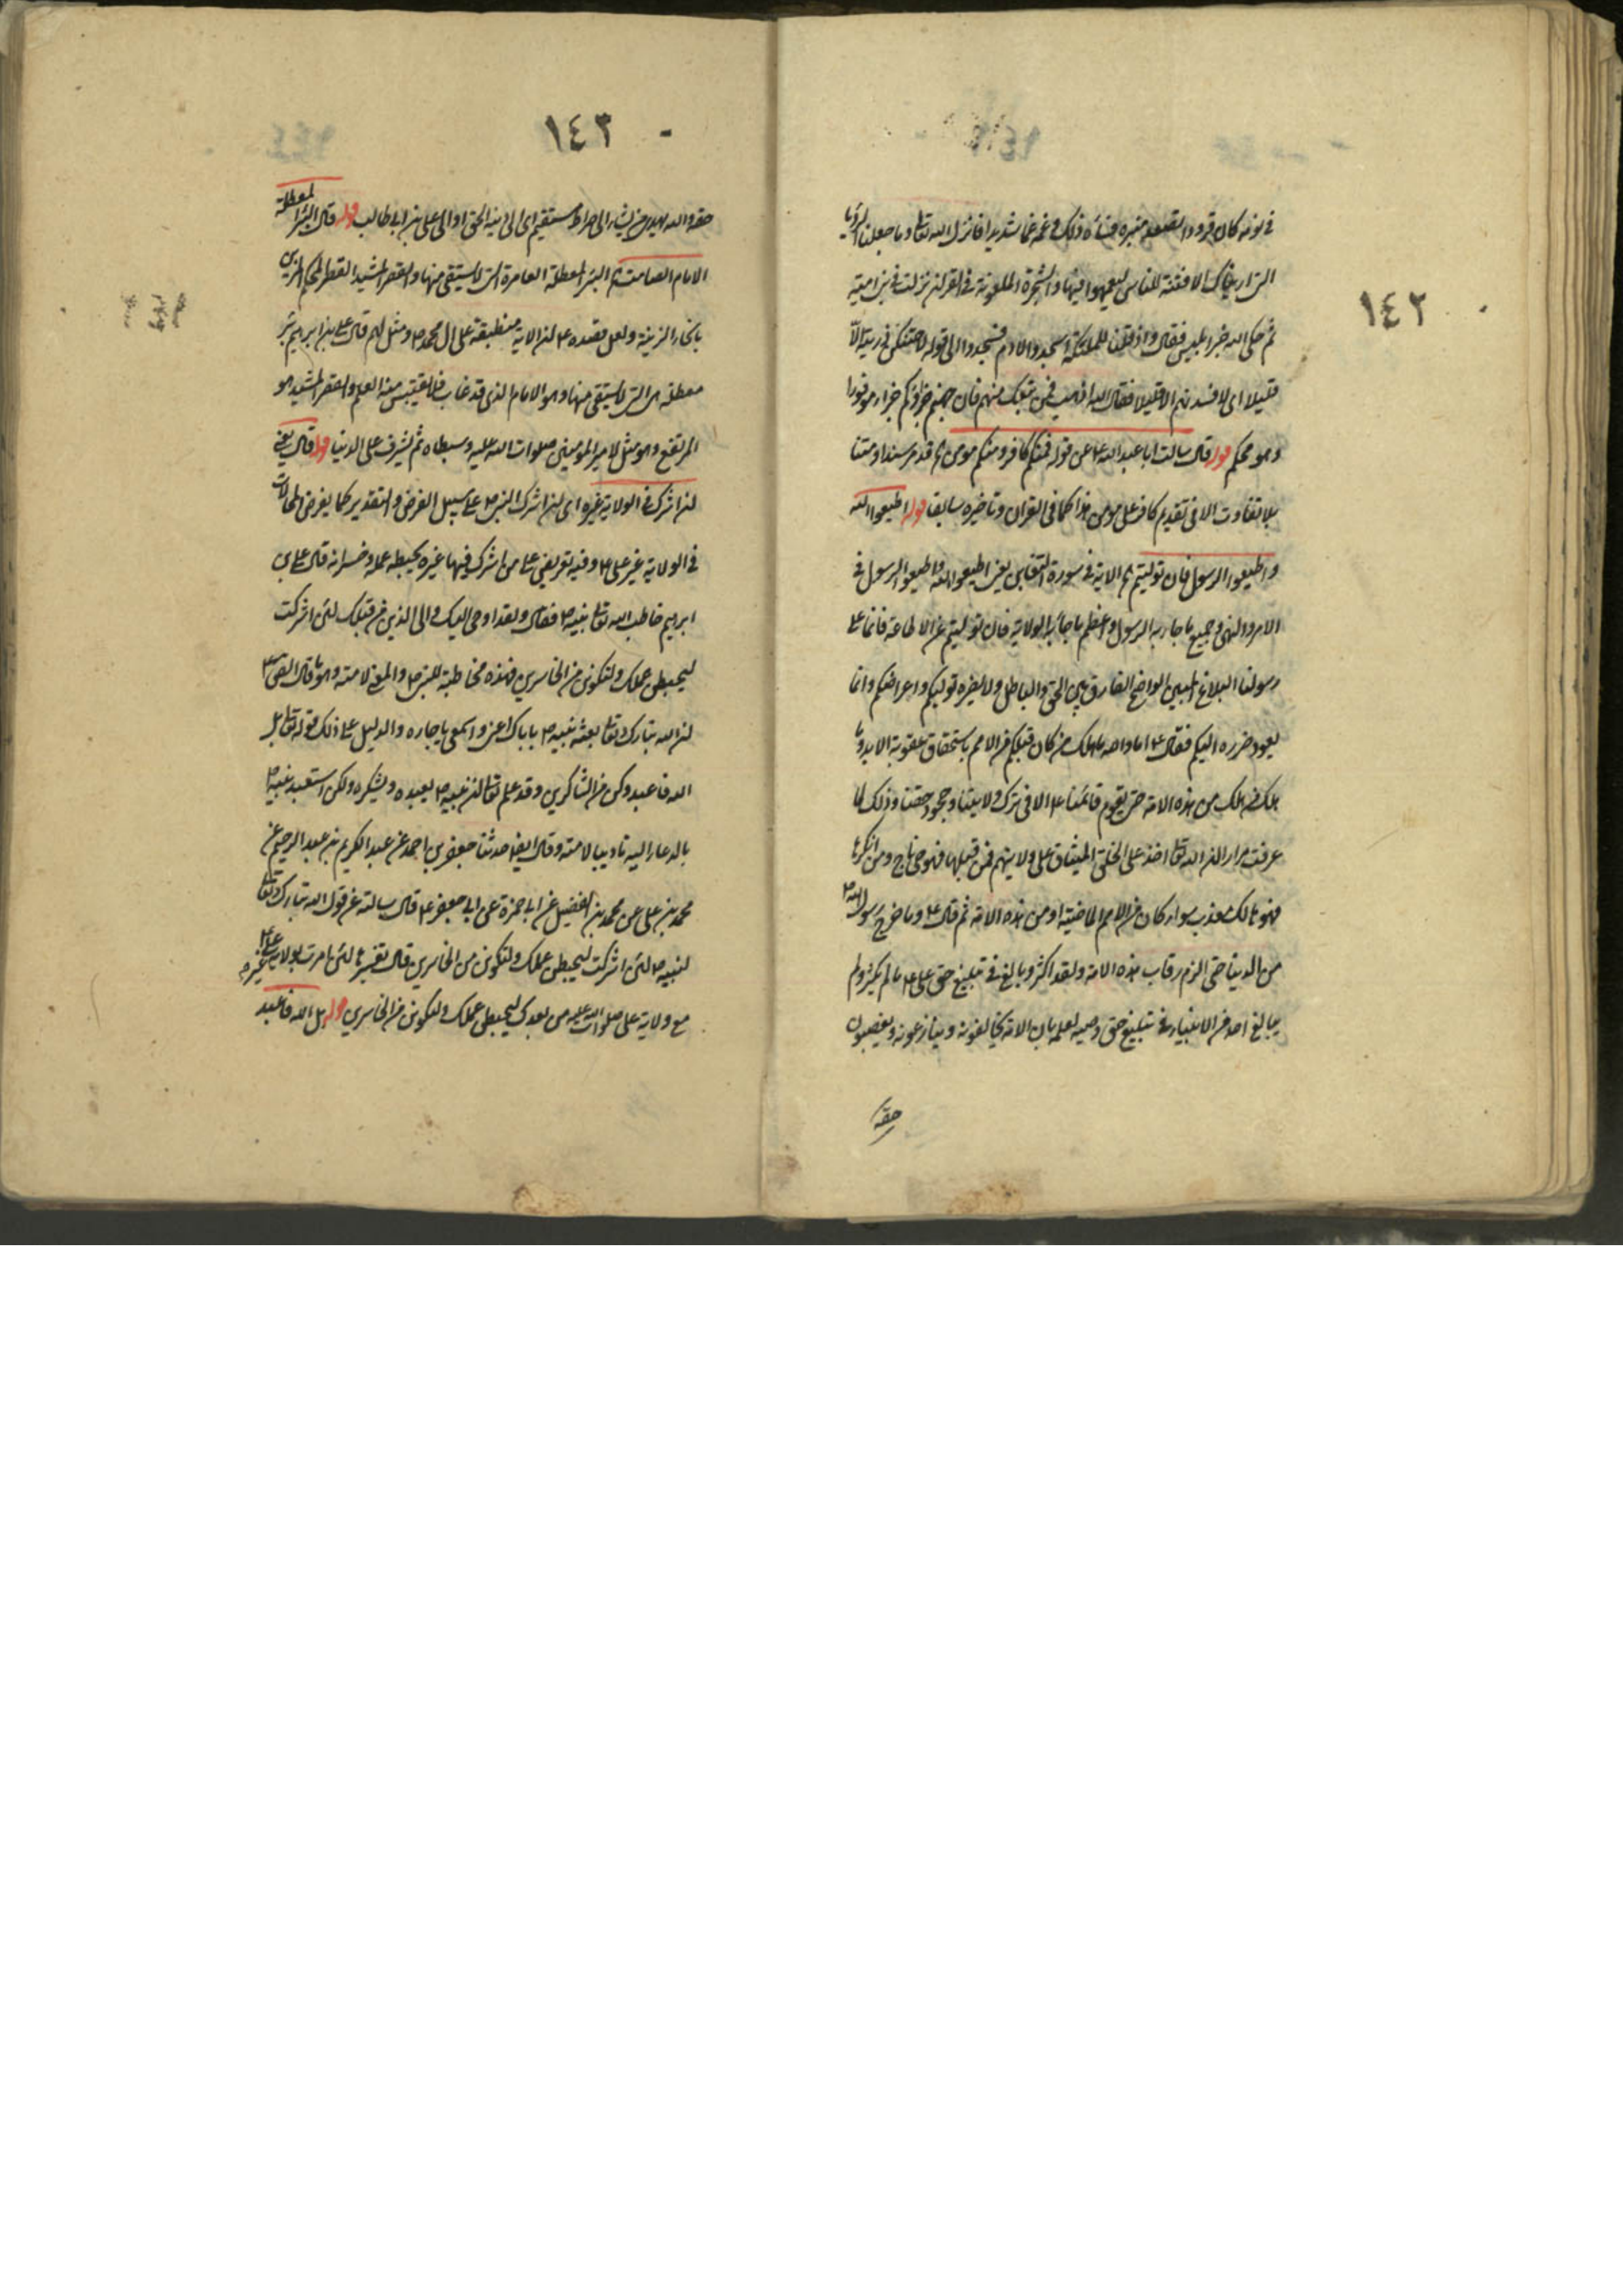 ١٤٢
في نومه كان قرودا تصعد منبره فساءه ذلك وغمه غما شديدا فانزل الله تعالى وما جعلنا الرؤيا
التي اريناك الا فتنة للناس ليعمهوا فيها والشجرة الملعونة في القران نزلت في بني امية
ثم حكى الله خبر ابليس فقال واذ قلنا للملئكة اسجدوا لادم فسجدوا الى قوله لاحتنكن ذريته الا
قليلا اى لافسدنهم الا قليلا فقال الله اذهب فمن تبعك منهم فان جهنم جزاؤكم جزاء موفورا
وهو محكم قوله قال سالت ابا عبد الله ع عن قوله فمنكم كافر ومنكم مومن اه قد مر سندا ومتنا
بلا تفاوت الا في تقديم كافر على مومن هنا كما في القران وتاخيره سابقا قوله اطيعوا الله
واطيعوا الرسول فان توليتم اه الاية في سورة التغابن يعني اطيعوا الله واطيعوا الرسول في
الامر والنهي في جميع ما جاء به الرسول واعظم ما جاء به الولاية فان توليتم عن الاطاعة فانما على
رسولنا البلاغ المبين الواضح الفارق بين الحق والباطل ولا يضره توليكم واعراضكم وانما
يعود ضرره اليكم فقال ع اما والله ما هلك من كان قبلكم من الامم باستحقاق عقوبة الابد وما
هلك من هلك من هذه الامة حتى يقوم قائمنا ع الا في ترك ولايتنا وجحود حقنا وذلك لما
عرفت مرارا ان الله تعالى اخذ على الخلق الميثاق على ولايتهم فمن قبلها فهو حي ناج ومن انكرها
فهو هالك معذب سواء كان من الامم الماضية او من هذه الامة ثم قال ع وما خرج رسول الله ص
من الدنيا حتى الزم رقاب هذه الامة ولقد اكثر وبالغ في تبليغ حق على ع ما لم يكثر ولم
يبالغ احد من الانبياء في تبليغ حق وصيه لعلمه بان الامة يخالفونه وينازعونه ويغصبون
حقه
١٤٣
حقه والله يهدى من يشاء الى صراط مستقيم اى الى دينه الحق او الى على بن ابى طالب قوله قال البئر المعطلة
الامام الصامت اه البئر المعطلة العامرة التي لا يستقى منها والقصر المشيد القصر المحكم المزين
معطلة هى التي لا يستقى منها وهو الامام الذى قد غاب فلا يقتبس منه العلم والقصر المشيد هو
المرتفع وهو مثل لامير المؤمنين صلوات الله عليه وسبطاه ثم يشرف على الدنيا قوله قال يعني
ان اشركت في الولاية غيره اى ان اشرك النبى ص على سبيل الفرض والتقدير كما يفرض المحالات
في الولاية غير على ع وفيه تعريض على من اشرك فيها غيره بحبطه عمله وخسرانه قال على بن
ابرهيم خاطب الله تعالى نبيه ص فقال ولقد اوحى اليك والى الذين من قبلك لئن اشركت
ليحبطن عملك ولتكونن من الخاسرين فهذه مخاطبة للنبى ص والمعنى لامته وهو ما قال الصادق ع
ان الله تبارك وتعالى بعث نبيه ص باياك اعنى واسمعى يا جاره والدليل على ذلك قوله تعالى بل
الله فاعبد وكن من الشاكرين وقد علم تعالى ان نبيه ص يعبده ويشكره ولكن استعبد نبيه ص
بالدعاء اليه تاديبا لامته وقال ايضا حدثنا جعفر بن احمد عن عبد الكريم بن عبد الرحيم عن
محمد بن على عن محمد بن الفضيل عن ابى حمزة عن ابى جعفر ع قال سالته عن قول الله تبارك وتعالى
لنبيه ص لئن اشركت ليحبطن عملك ولتكونن من الخاسرين قال تفسيرها لئن امرت بولاية على ع غيره
مع ولاية على صلوات الله عليه من بعدك ليحبطن عملك ولتكونن من الخاسرين قوله بل الله فاعبد